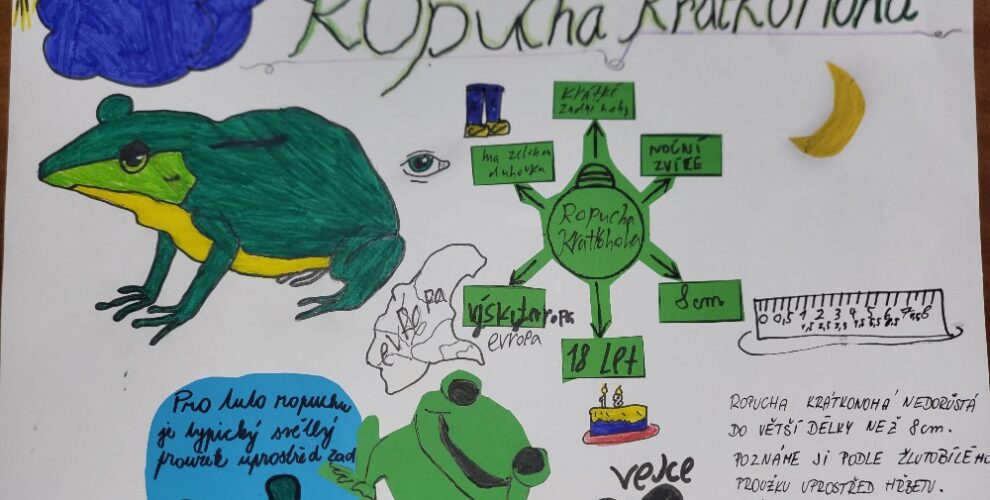 Ropucha Krátkonohá
KRÁTKÉ
zadní nohy
má zelenou
duhovku
NOČNÍ
ZVÍŘE
Ropucha
Krátkohoha
výskyt evropa
evropa
evRopa
8cm
18 Let
18
0 0,5 1 2 3 4 5 6 7 7,5 8
1,5 2,5 3,5 4,5 5,5 6,5
Pro tuto ropuchu
je typický světlý
proužek uprostřed zad
vejce
ROPUCHA KRÁTKONOHÁ NEDORŮSTÁ
DO VĚTŠÍ DÉLKY NEŽ 8cm.
POZNÁME JI PODLE ŽLUTOBÍLÉHO
PROUŽKU UPROSTŘED HŘBETU.